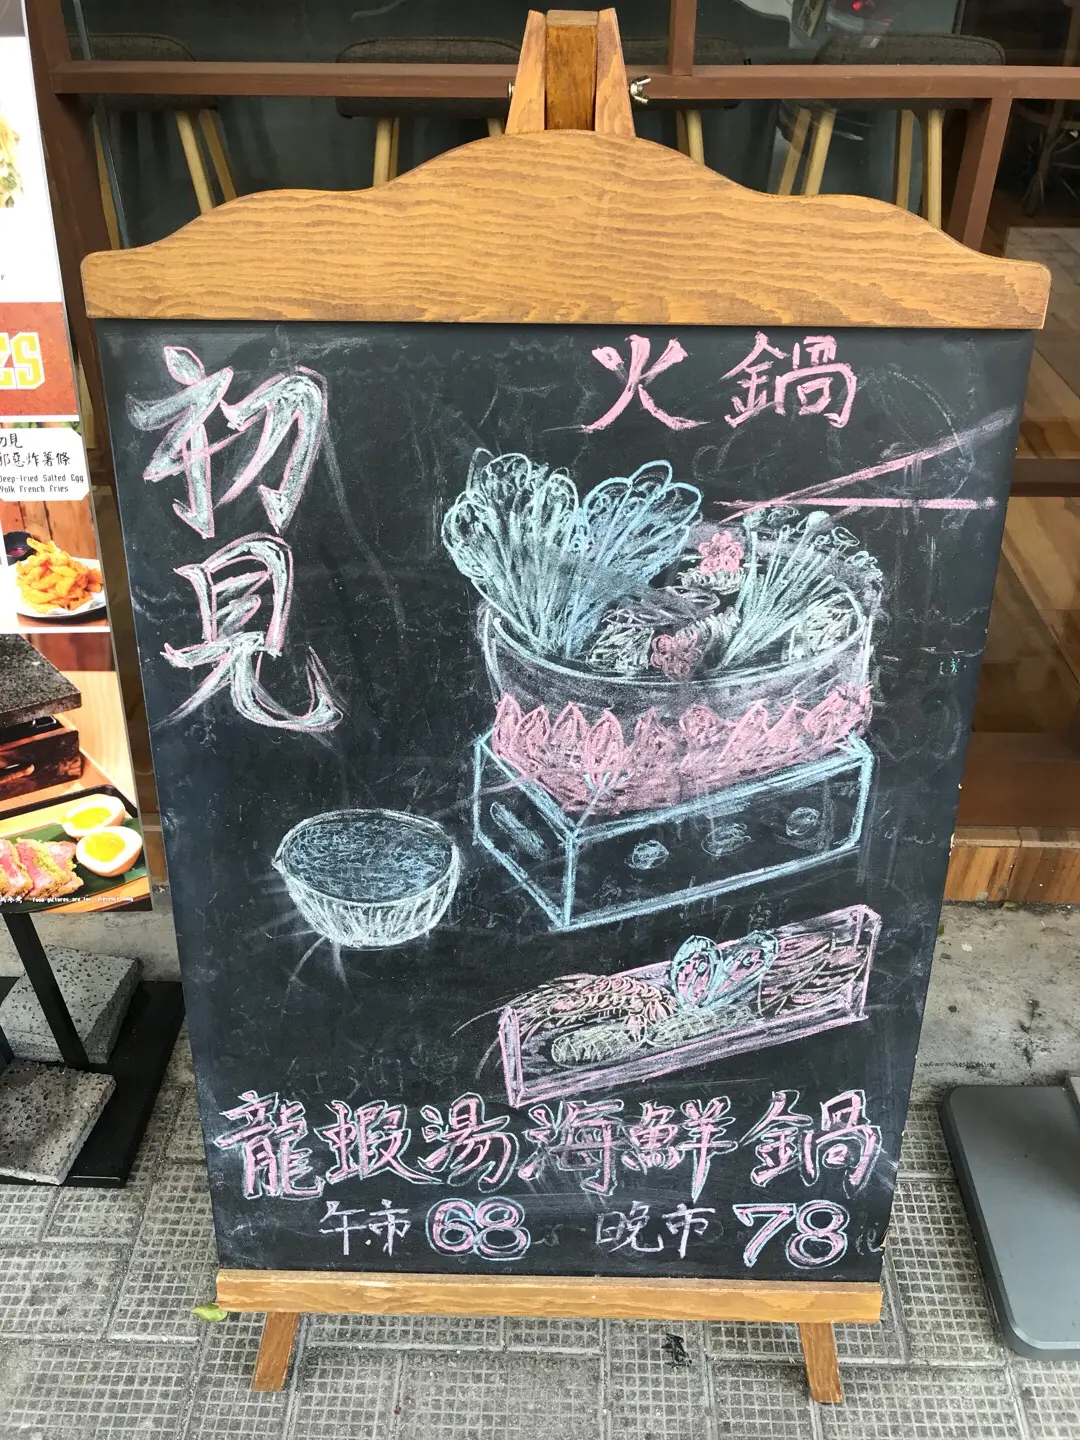 初見
火鍋
龍蝦湯海鮮鍋
午市 68 晚市 78
ES
初見
邪惡炸薯條
Deep-fried Salted Egg
Yolk French Fries
Food pictures are for reference only